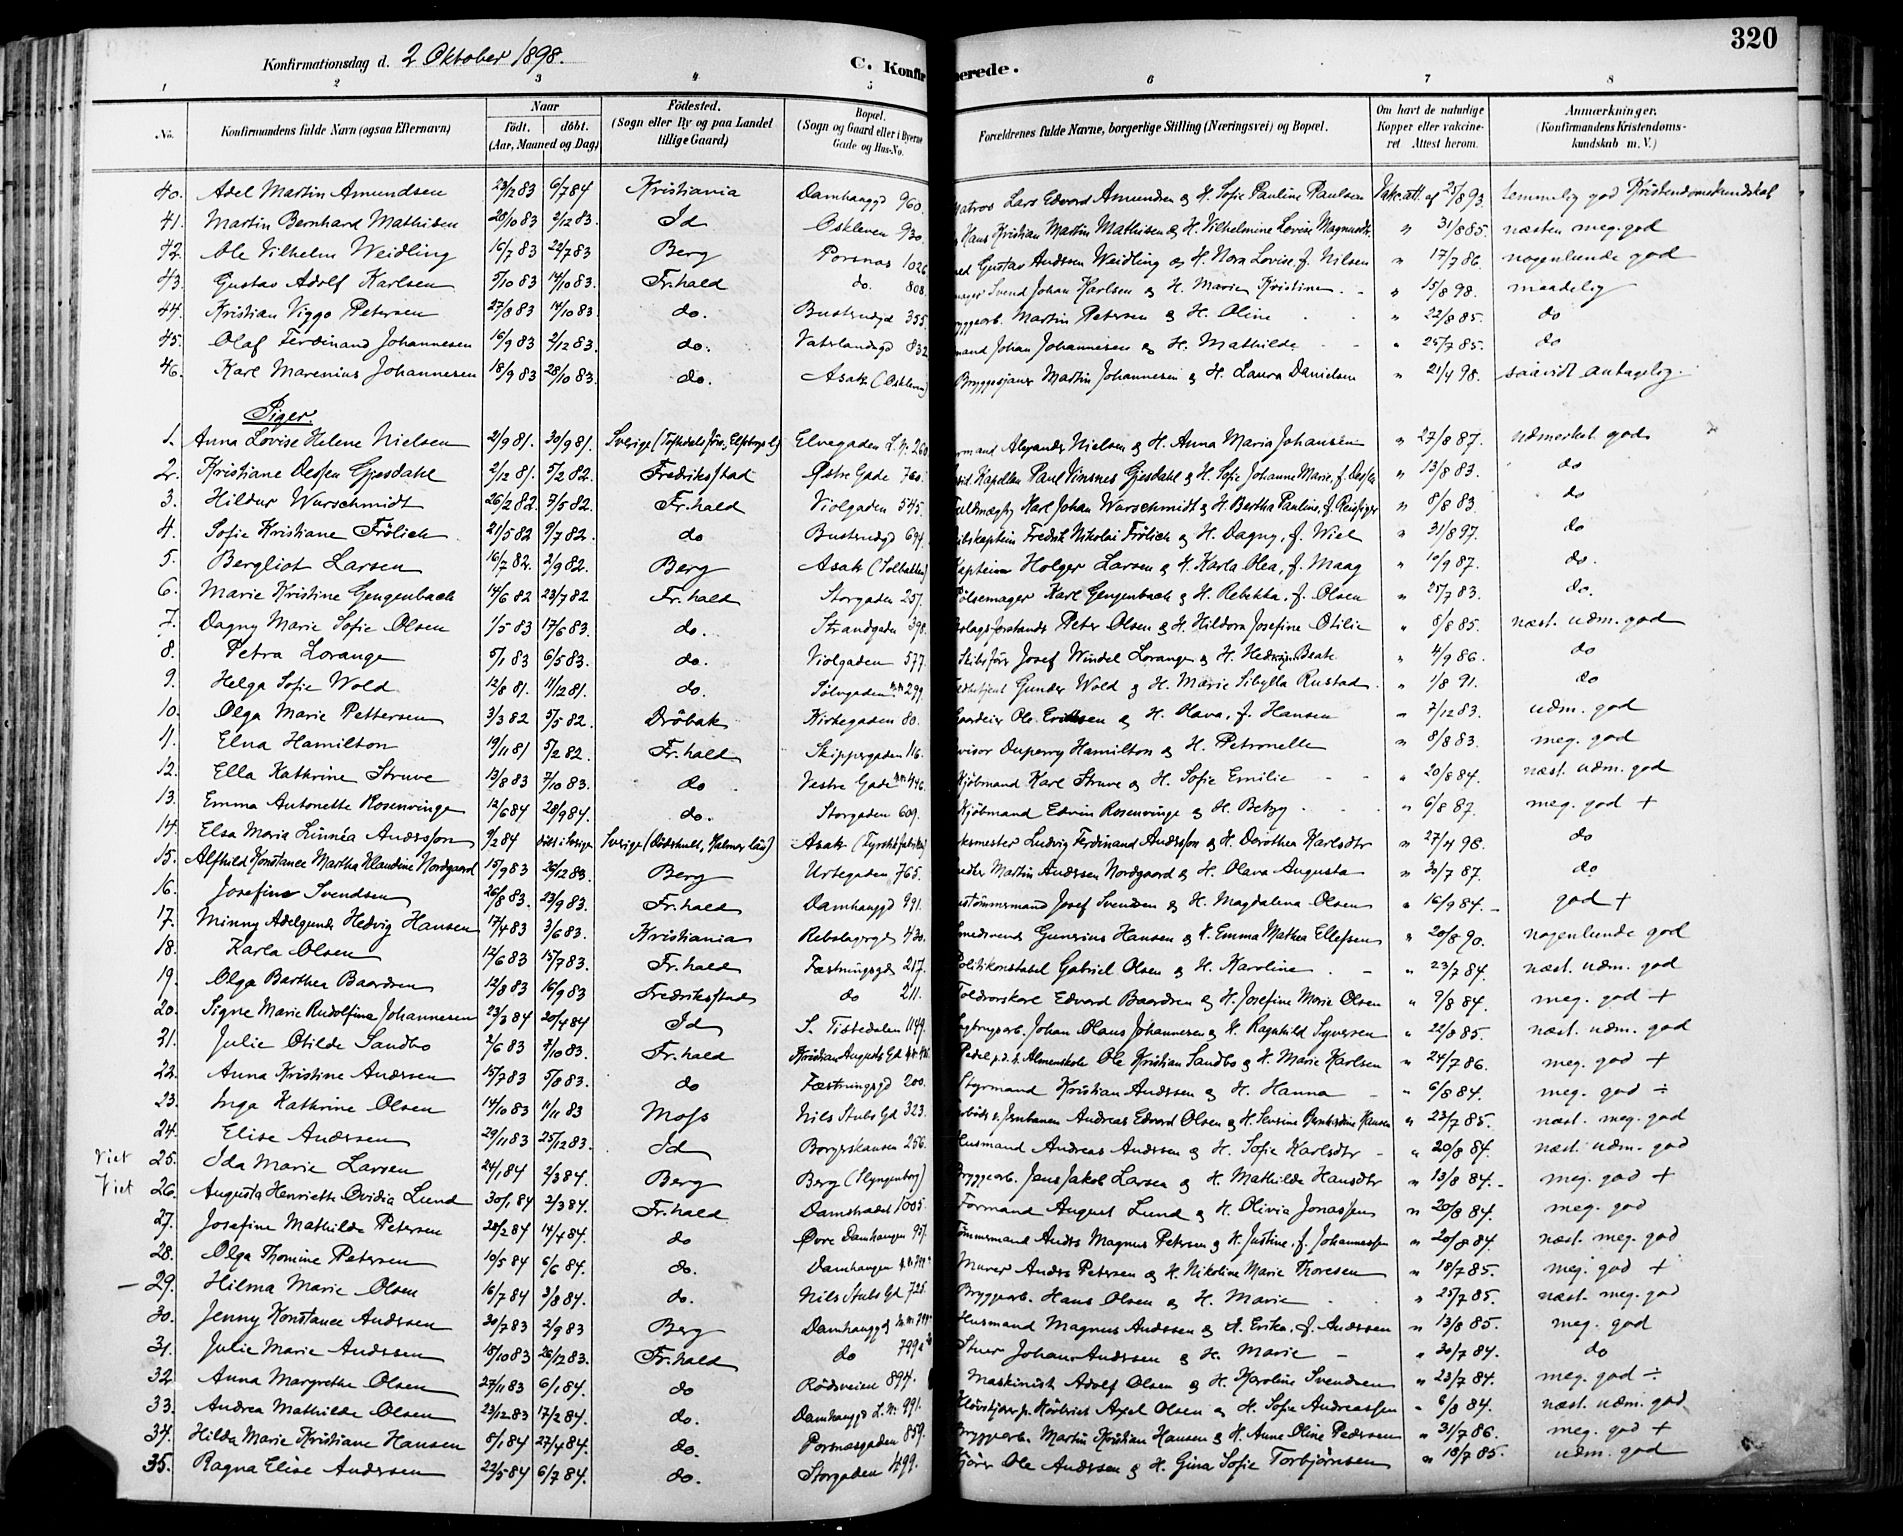 320
Konfirmationsdag d. 2 Oktober 1898. C. Konfir merede.
1 2 3 4 5 6 7 8
No. Konfirmandens fulde Navn (ogsaa Efternavn) Naar født. døbt. (Aar, Maaned og Dag) Fødested. (Sogn eller By og paa Landet tillige Gaard) Bopæl. (Sogn og Gaard eller i Byerne Gade og Hus-No. Forældrenes fulde Navne, borgerlige Stilling (Næringsvei) og Bopæl. Om havt de naturlige Kopper eller vakcineret Attest herom. Anmærkninger. (Konfirmandens Kristendomskundskab m. V.)
40. Adel Martin Amundsen 23/12 83 6/7 84 Kristiania Damhauggd 960. Matros Lars Edvard Amundsen & H. Sofie Pauline Paulsen Vakc.att. af 25/8 93. temmelig god Kristendomskundskab
41. Martin Bernhard Mathisen 20/10 83 2/12 83. Id Oskleven 930. Hans Kristian Martin Mathisen & H. Vilhelmine Lovise Magnusdtr. " 31/8 85. næsten meg. god
42. Ole Vilhelm Weidling 16/7 83 22/7 83 Berg Porsnæs 1026 Gustav Andssen Weidling & H. Nora Lovise, f. Nilsen " 17/7 86. nogenlunde god
43. Gustav Adolf Karlsen 5/10 83 14/10 83. Fr.hald do. 808. Svend Johan Karlsen & H. Marie Kristine " 15/8 98. maadelig
44. Kristian Viggo Petersen 27/8 83 14/10 83 do. Bustrudgd 355. Bryggearb. Martin Petersen & H. Oline " 22/8 85. do
45. Olaf Ferdinand Johannesen 16/9 83 2/12 83. do. Vaterlandsgd 832 Johan Johannesen & H. Mathilde " 25/7 85. do
46. Karl Marenius Johannesen 18/9 83 28/10 83. do. Asak (Oskleven) Bryggesjauer Martin Johannesen & H. Laura Danielsen " 21/4 98. saavidt antagelig.
Piger.
1. Anna Lovise Helene Nielsen 2/9 81. 30/9 81. Sverige Elvegaden L. Nr. 260 Alexander Nielsen & H. Anna Maria Johansen " 27/8 87. udmerket god
2. Kristiane Olssen Gjesdahl 2/12 81. 5/2 82. Fredriksstad Østre Gade 760. Kapellan Paul Vinsnes Gjesdahl & H. Sofie Johanne Marie, f. " 13/8 83. do
3. Hildur Wurschmidt 26/2 82. 7/5 82. Fr.hald Violgaden 545. Fuldmægtig Karl Johan Wurschmidt & H. Bertha Pauline, f. Reissiger " 8/8 83. do
4. Sofie Kristiane Frölich 21/5 82 9/7 82. do Bustrudgd 694. Fredrik Nikolai Frölich & H. Dagny, f. Wiel " 31/8 97. do
5. Bergliot Larsen 16/7 82. 2/9 82. Berg Asak (Solbakken) Kaptein Holger Larsen & H. Karla Olea, f. Maag " 10/9 87. do.
6. Marie Kristine Gengenbach 14/6 82 23/7 82 Fr.hald Storgaden 257. Pølsemager Karl Gengenbach & H. Rebekka, f. Olsen " 25/7 83. do.
7. Dagny Marie Sofie Olsen 1/5 83 17/6 83. do. Strandgaden 398. Peter Olsen & H. Hildora Josefine Otilie " 8/8 85. næst. udm. god
8. Petra Lorange 5/1 83 6/5 83. do. Violgaden 577. Skibsfører Josef Windel Lorange & H. Hedvig Beate " 4/9 86. do
9. Helga Sofie Wold 12/8 81. 11/12 81. do. Sölvgaden 299. Gunder Wold & H. Marie Sibylla Rustad " 1/8 91. do
10. Olga Marie Pettersen 3/3 82 5/5 82. Dröbak Kirkegaden 80. Gaardeier Ole Eriksen & H. Olava, f. Hansen " 7/12 83. udm. god
11. Elna Hamilton 19/11 81 5/2 82. Fr.hald Skippergaden 116. Duperry Hamilton & H. Petronelle " 8/8 83. meg. god
12. Ella Kathrine Struve 13/8 83 7/10 83. do Vestre Gade 446. Kjöbmand Karl Struve & H. Sofie Emilie " 20/8 84. næst. udm. god
13. Emma Antonette Rosenvinge 12/6 84 28/9 84. do. Storgaden 609. Kjöbmand Edvin Rosenvinge & H. Betzy " 6/8 87. meg. god +
14. Elsa Maria Linnéa Andersson 9/2 84 döbt i Sverige Sverige (Dödshult, Kalmar län) Asak Ludvig Ferdinand Andersson & H. Dorothea Karlsdtr " 27/4 98. do
15. Alfhild Konstance Martha Klaudine Nordgaard 15/9 83 26/12 83. Berg Urtegaden 765. Martin Anderssen Nordgaard & H. Olava Augusta " 30/7 87. do
16. Josefine Svendsen 26/8 83. 23/9 83. Fr.hald Damhauggd 991. Josef Svendsen & H. Magdalena Olsen " 16/9 84. god +
17. Minny Adelgunde Hedvig Hansen 17/4 83 3/6 83. Kristiania Rebslagergd 430. Smedsvend Gunerius Hansen & H. Emma Mathea Ellefsen " 20/8 90. nogenlunde god
18. Karla Olsen 12/6 83 15/7 83. Fr.hald Fæstningsgd 217. Politikonstabel Gabriel Olsen & H. Karoline " 23/7 84. næst. udm. god
19. Olga Barthea Baardsen 12/8 83 16/9 83 Fredriksstad do 211. Edvard Baardsen & H. Josefine Marie Olsen " 9/8 84. meg. god +
20. Signe Marie Rudolfine Johannesen 23/3 84 20/4 84 Id S. Tistedalen 1149. Johan Olaus Johannesen & H. Ragnhild Syversen " 22/8 85. næst. udm. god
21. Julie Otilde Sandbo 2/6 83 7/10 83. Fr.hald Kristian Augusts Gd Pedel p. d. h. Almenskole Ole Kristian Sandbo & H. Marie Karlsen " 24/7 86. meg. god +
22. Anna Kristine Andersen 15/7 83 5/8 83. do Fæstningsgd 200. Styrmand Kristian Andersen & H. Hanna " 6/8 84. meg. god ÷
23. Inga Kathrine Olsen 14/10 83 11/11 83 Moss Nils Stubs Gd 323. Andreas Edvard Olsen & H. Severine Bernhardine Hansen " 23/7 85. næst. meg. god
24. Elise Andersen 29/11 83 25/12 83. Id Borgerskansen 256. Husmand Andreas Andersen & H. Sofie Karlsdtr " 20/8 84. næst. udm. god
Viet 25. Ida Marie Larsen 24/1 84 2/3 84. Berg Berg (Flyngenborg) Bryggearb. Jens Jakob Larsen & H. Mathilde Hansdtr " 13/8 84. meg. god +
Viet 26. Augusta Henriette Ovidia Lund 30/1 84 2/3 84. Fr.hald Damstrædet 1005. Formand August Lund & H. Olivia Jonassen " 20/8 84. meg. god
27. Josefine Mathilde Petersen 28/2 84 14/4 84. do Øvre Damhaugen 957. Tömmermand Anders Magnus Petersen & H. Justine, f. Johannessen " 20/8 84. næst. meg. god
28. Olga Thomine Petersen 10/5 84 6/6 84. do. Damhaugen Murer Anders Petersen & H. Nikoline Marie Thoresen " 18/7 85. meg. god +
— 29. Hilma Marie Olsen 16/7 84 3/8 84. do. Nils Stubs Gd 725. Bryggearb. Hans Olsen & H. Marie " 25/7 85. næst. meg. god
30. Jenny Konstance Andersen 30/7 83 2/9 83 Berg Damhauggd Husmand Magnus Andersen & H. Erika, f. Andersen " 13/8 85. meg. god
31. Julie Marie Andersen 18/10 83 26/12 83. Fr.hald do 799a Stuer Johan Andersen & H. Marie " 30/7 84. do
32. Anna Margrethe Olsen 27/11 83 6/1 84. do Rödsveien 894. Maskinist Adolf Olsen & H. Karoline Svendsen " 23/7 84. meg. god ÷
33. Andrea Mathilde Olsen 23/12 83 17/2 84. do. Damhauggd L. Nr. 991. Axel Olsen & H. Sofie Andreassen " 6/8 84. næst. udm. god
34. Hilda Marie Kristiane Hansen 8/1 84 27/4 84. do. Porsnæsgaden 859. Bryggearb. Martin Kristian Hansen & H. Anne Oline Pedersen " 31/7 86. meg. god +
35. Ragna Elise Andersen 22/5 84 6/7 84. do. Storgaden 499. Ole Andersen & H. Gina Sofie Torbjørnsen " 18/7 85. udm. god